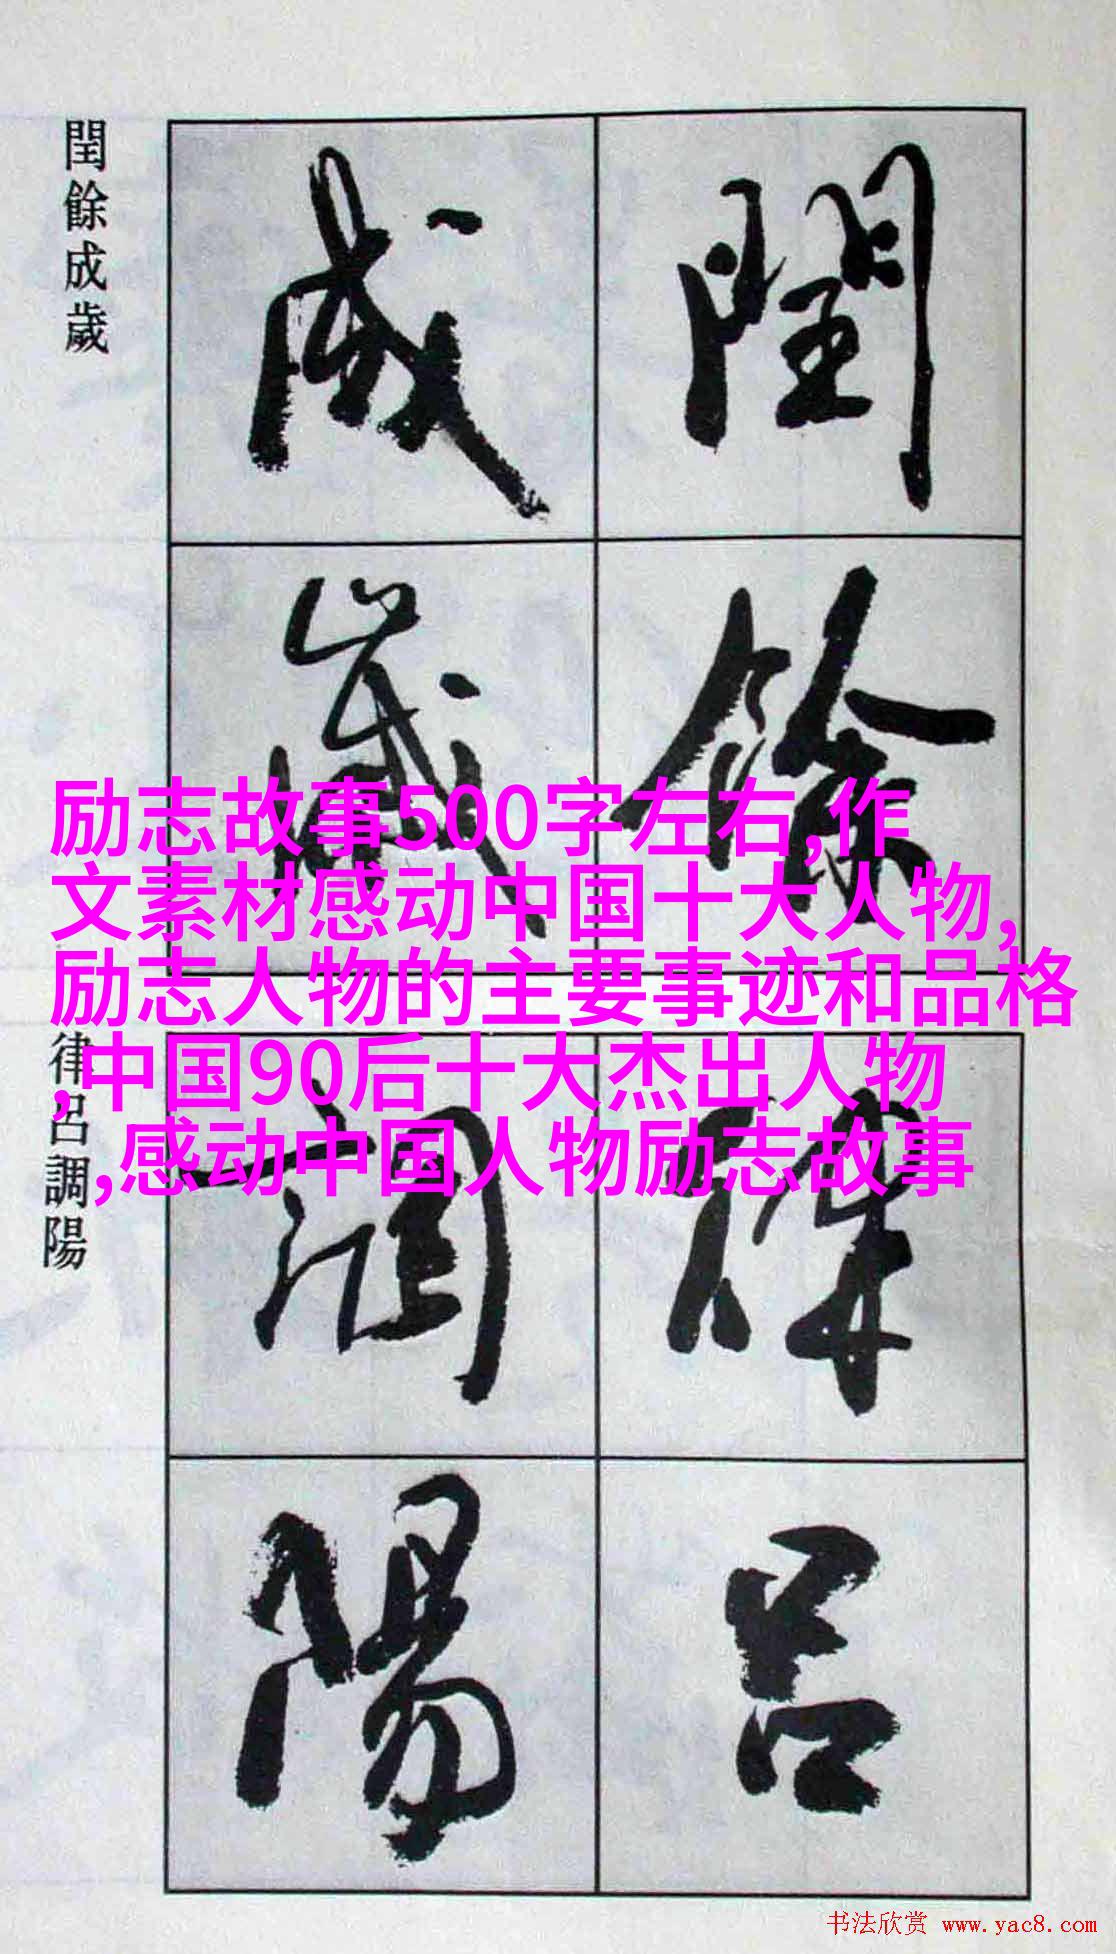 閏餘成歲
閏餘
成歲
励志故事500字左右,作
文素材感动中国十大人物,
励志人物的主要事迹和品格
,中国90后十大杰出人物
,感动中国人物励志故事
律呂調陽
律呂
調陽
书法欣赏 www.yac8.com